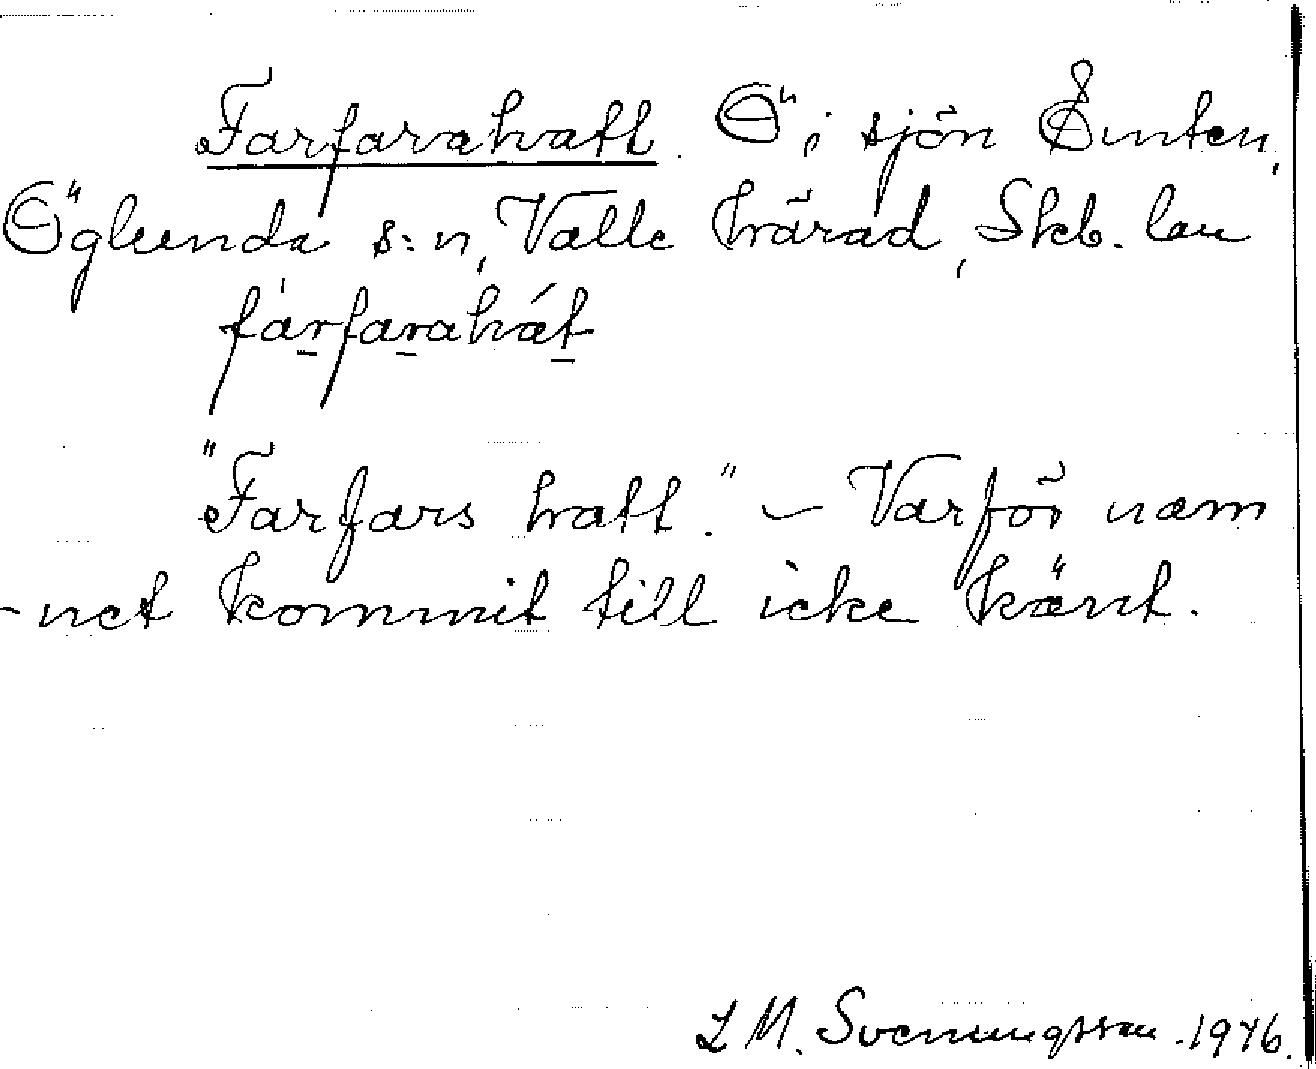 Farfarahatt. Ö i sjön Emten,
Öglunda s:n, Valle härad, Skb. län
fàrfarahát
"Farfars hatt." – Varför nam
-net kommit till icke känt.
L M. Svenungsson. 1946.